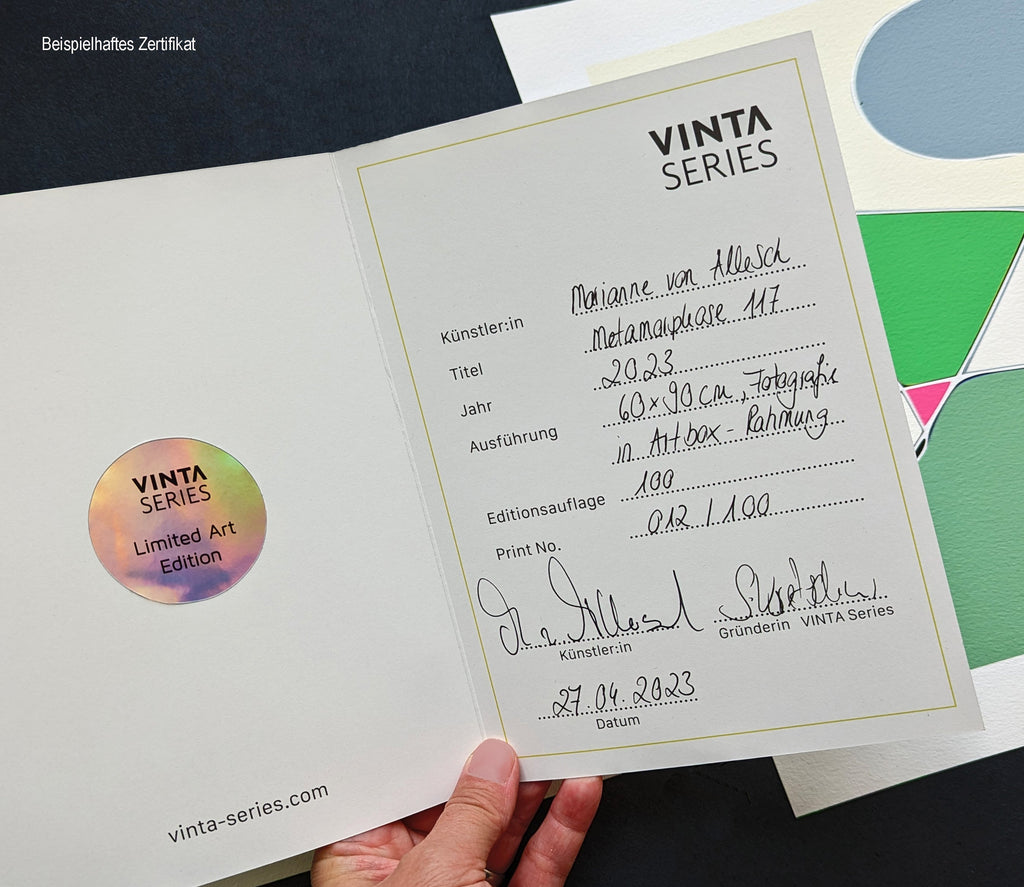 Beispielhaftes Zertifikat
VINTA
SERIES
Limited Art
Edition
vinta-series.com
VINTA
SERIES
Künstler:in Marianne von Allesch
Titel Metamorphase 117
Jahr 2023
Ausführung 60 x 90 cm, Fotografie
in Artbox - Rahmung
Editionsauflage 100
Print No. 012 / 100
Künstler:in
Gründerin VINTA Series
27.04.2023
Datum